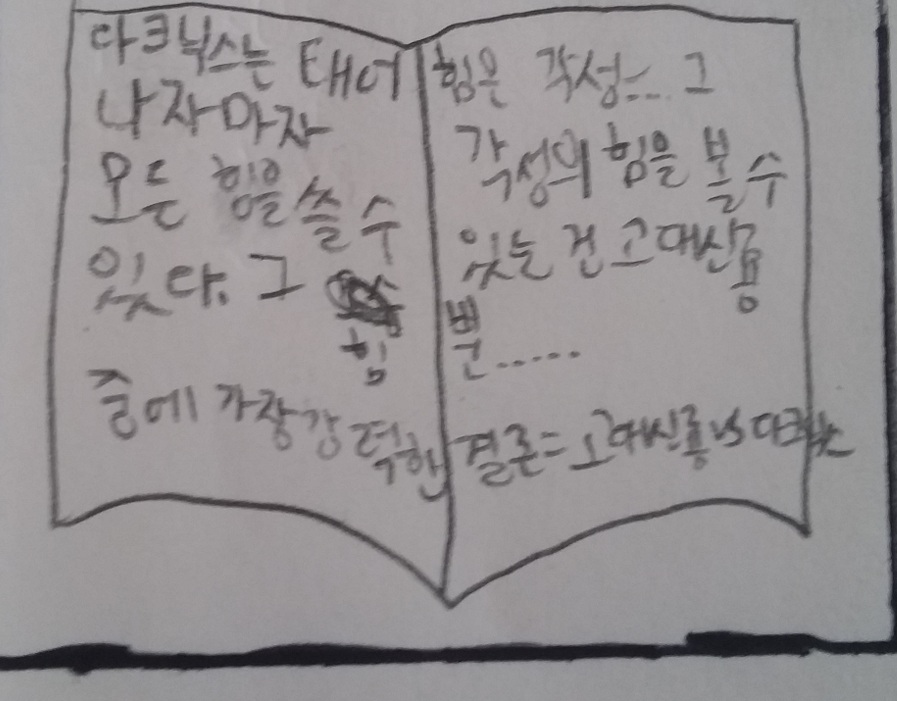 다크닉스는 태어
나자마자
모든 힘을 쓸 수
있다. 그
힘
중에 가장 강력한
힘은 각성... 그
각성의 힘을 쓸 수
있는 건 고대신룡
뿐......
결론= 고대신룡 vs 다크닉스